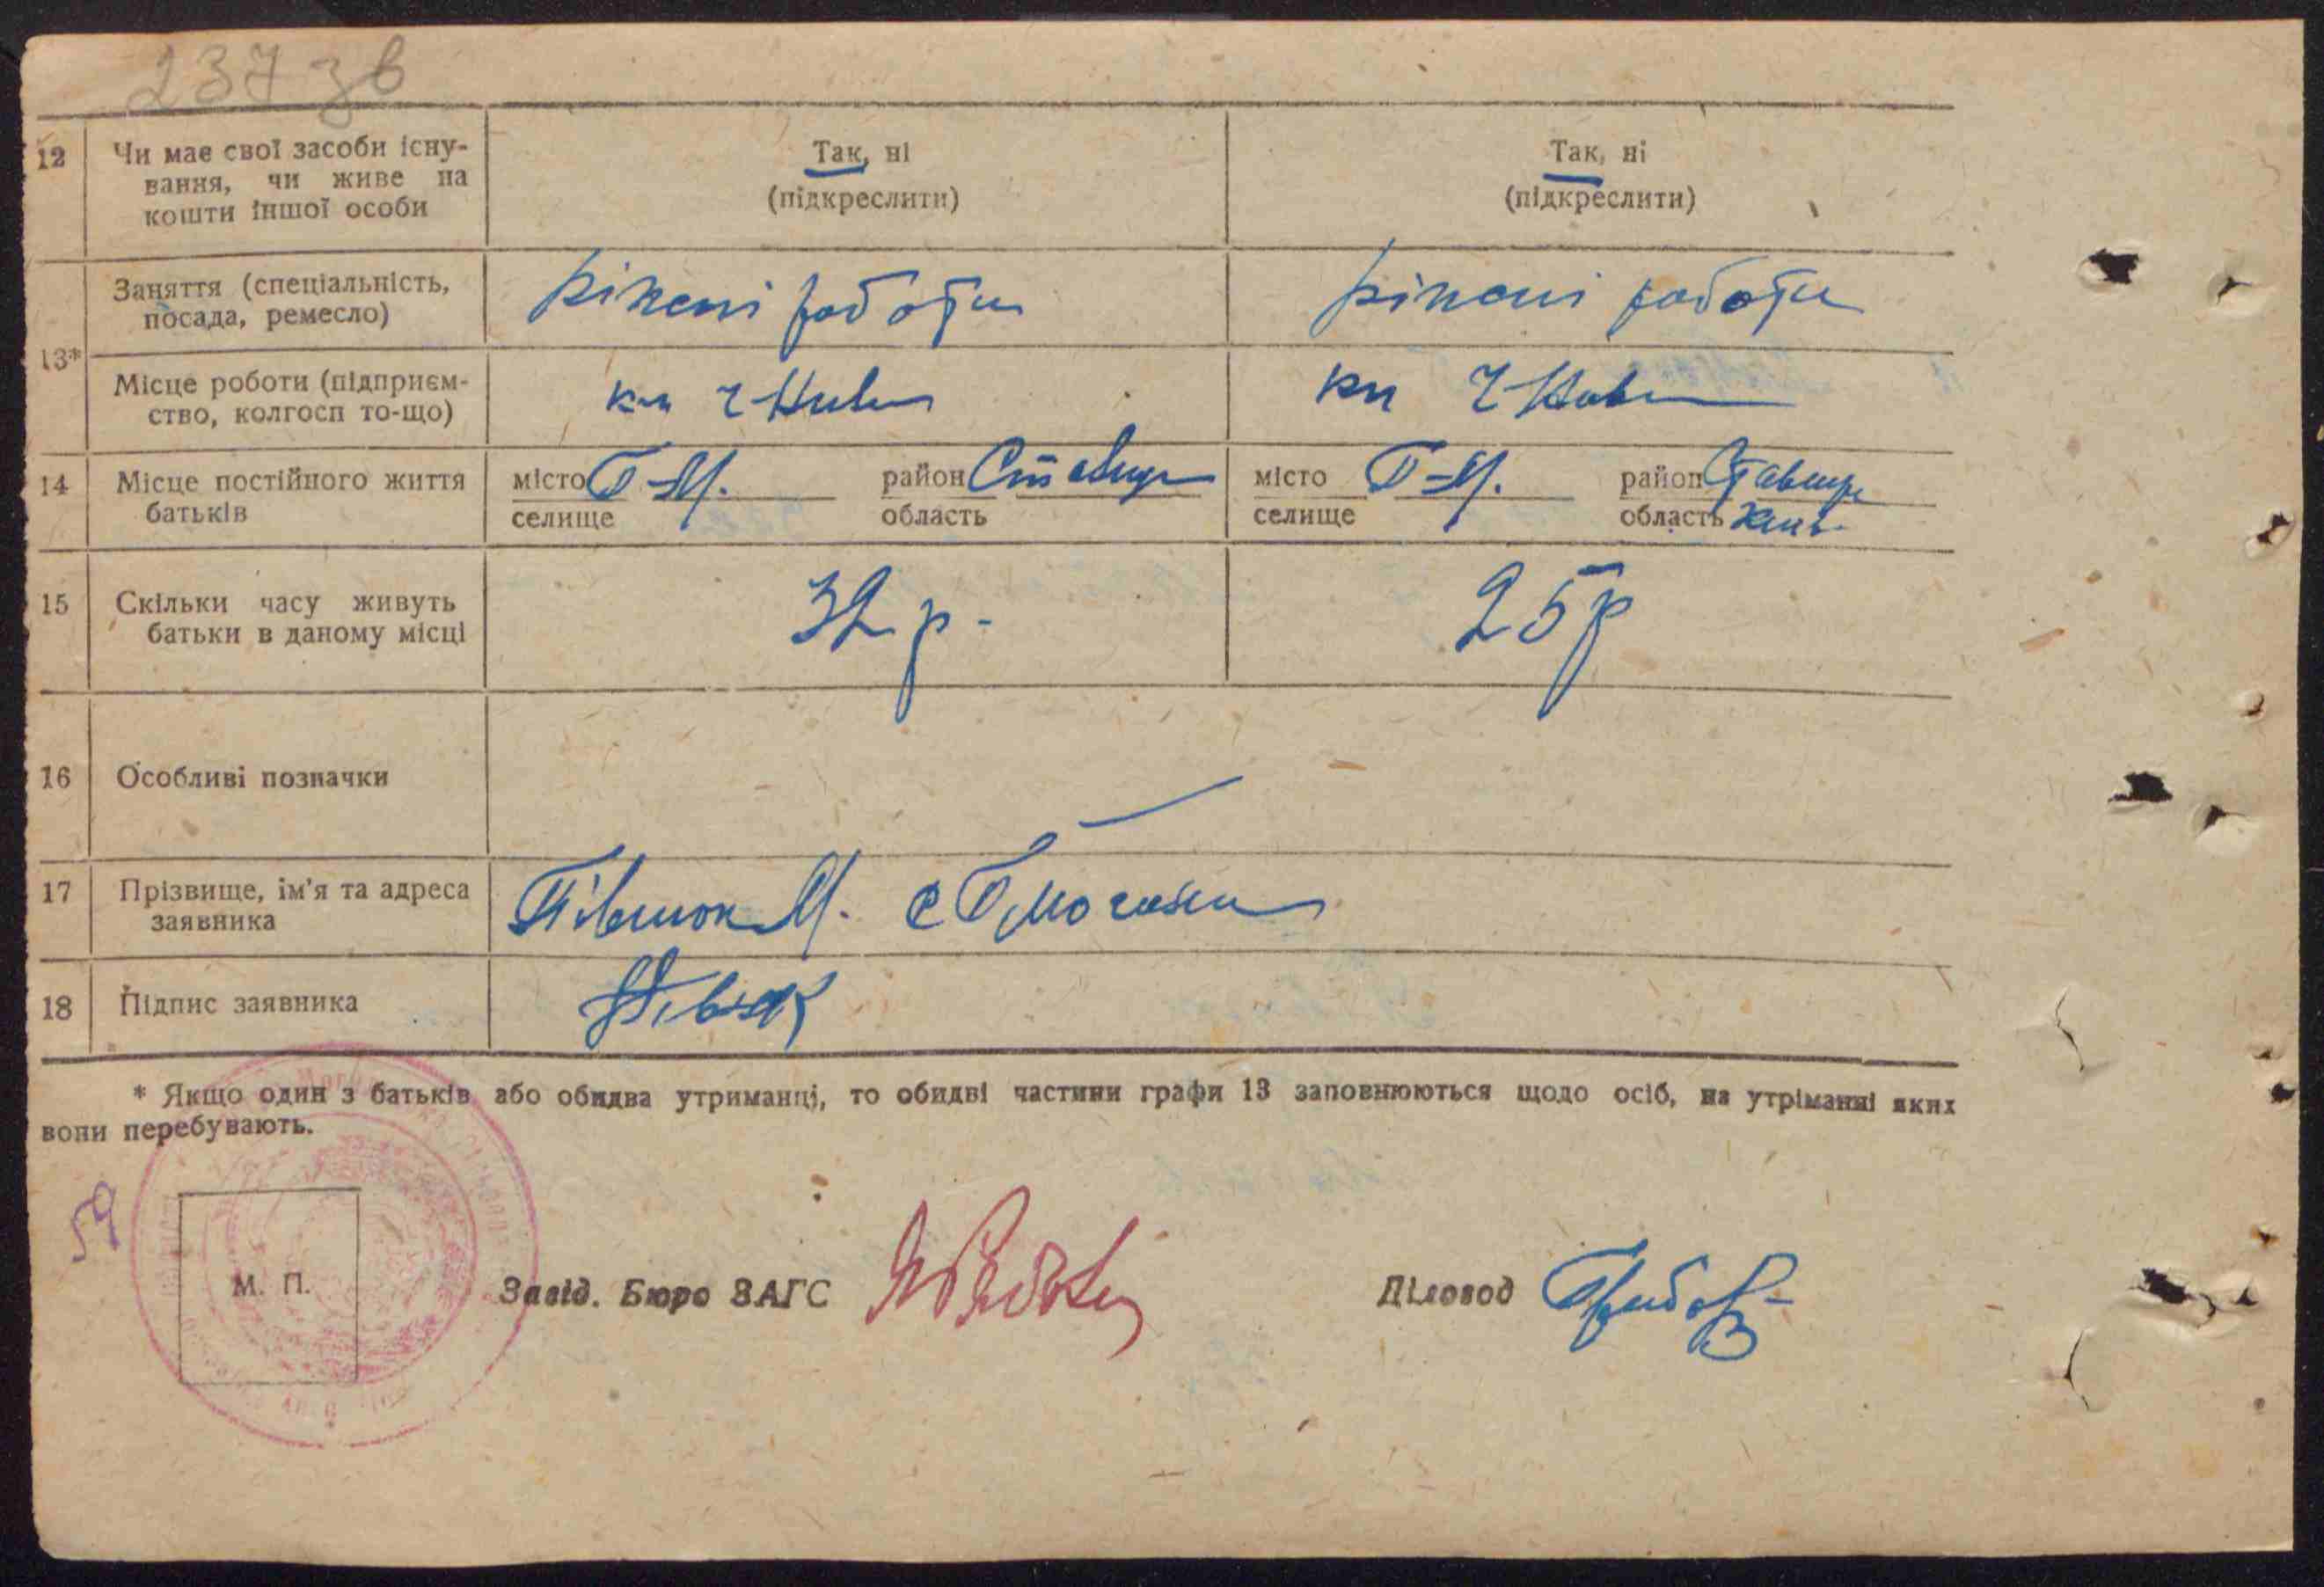 237 зв
12 Чи має свої засоби існу-
вання, чи живе на
кошти іншої особи
Так, ні
(підкреслити)
Так, ні
(підкреслити)
13*
Заняття (спеціальність,
посада, ремесло)
різкні роботи
різкні роботи
Місце роботи (підприєм-
ство, колгосп то-що)
14 Місце постійного життя
батьків
місто Г-М. район Ставище
селище область
місто Г-М. район Ставище
селище область Київ.
15 Скільки часу живуть
батьки в даному місці
32 р.
25 р
16 Особливі позначки
17 Прізвище, ім'я та адреса
заявника
М. с
18 Підпис заявника
* Якщо один з батьків або обидва утриманці, то обидві частини графи 13 заповнюються щодо осіб, на утріманні яких
вони перебувають.
59
М. П.
Завід. Бюро ЗАГС
Діловод